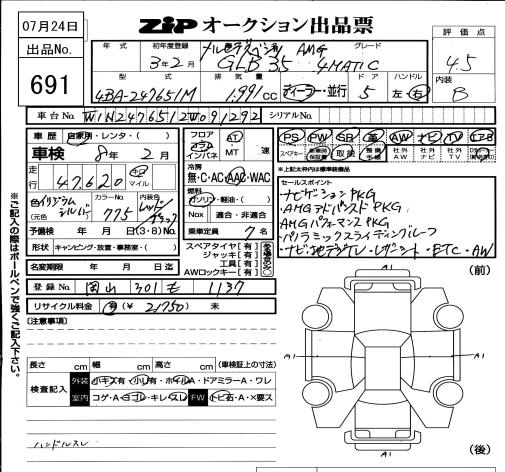 07月24日
ZIP オークション出品票
出品No.
691
年式 初年度登録 グレード
メルセデスベンツ AMG
3年2月 GLB 35 4MATIC
型式 排気量 ドア ハンドル
4BA-247651M 1,991 CC ディーラー・並行 5 左・右
評価点
4.5
内装
B
車台No. W1N2476512W091292 シリアルNo.
車歴 自家用・レンタ・( )
車検 8年2月
走行 47,620 キロ マイル
色 イリジウムシルバー (元色 )
カラーNo. 775
内装色 レッド ブラック
予備検 年 月 日(3・8)No.
形状 キャンピング・放置・事務室・( )
名変期限 年 月 日迄
登録No. 岡山 301 1137
リサイクル料金 (¥ 21,750 ) 未
フロア コラム インパネ
AT MT 速
冷房
無・C・AC・AAC・WAC
燃料
ガソリン・軽油・( )
Nox 適合・非適合
乗車定員 7 名
スペアタイヤ[有]
ジャッキ[有]
工具[有]
AWロックキー[有]
PS PW SR 革 AW ナビ TV エアB
スペアキー 取説 社外AW 社外ナビ 社外TV
※上記太枠内は標準装備品
セールスポイント
・ナビゲーションPKG
・AMGアドバンスドPKG
・AMGパフォーマンスPKG
・パノラミックスライディングルーフ
・ナビ・地デジTV・レザーシート・ETC・AW
※ご記入の際はボールペンで強くご記入下さい。
[注意事項]
長さ cm 幅 cm 高さ cm (車検証上の寸法)
検査記入
外装 小キズ有・小凹有・ホイルA・ドアミラーA・ワレ
室内 コゲ・A・ヨゴレ・キレ・スレ FW トビ石・A・×要ス
ハンドルスレ
(前)
A1
A1
A1
A1
(後)